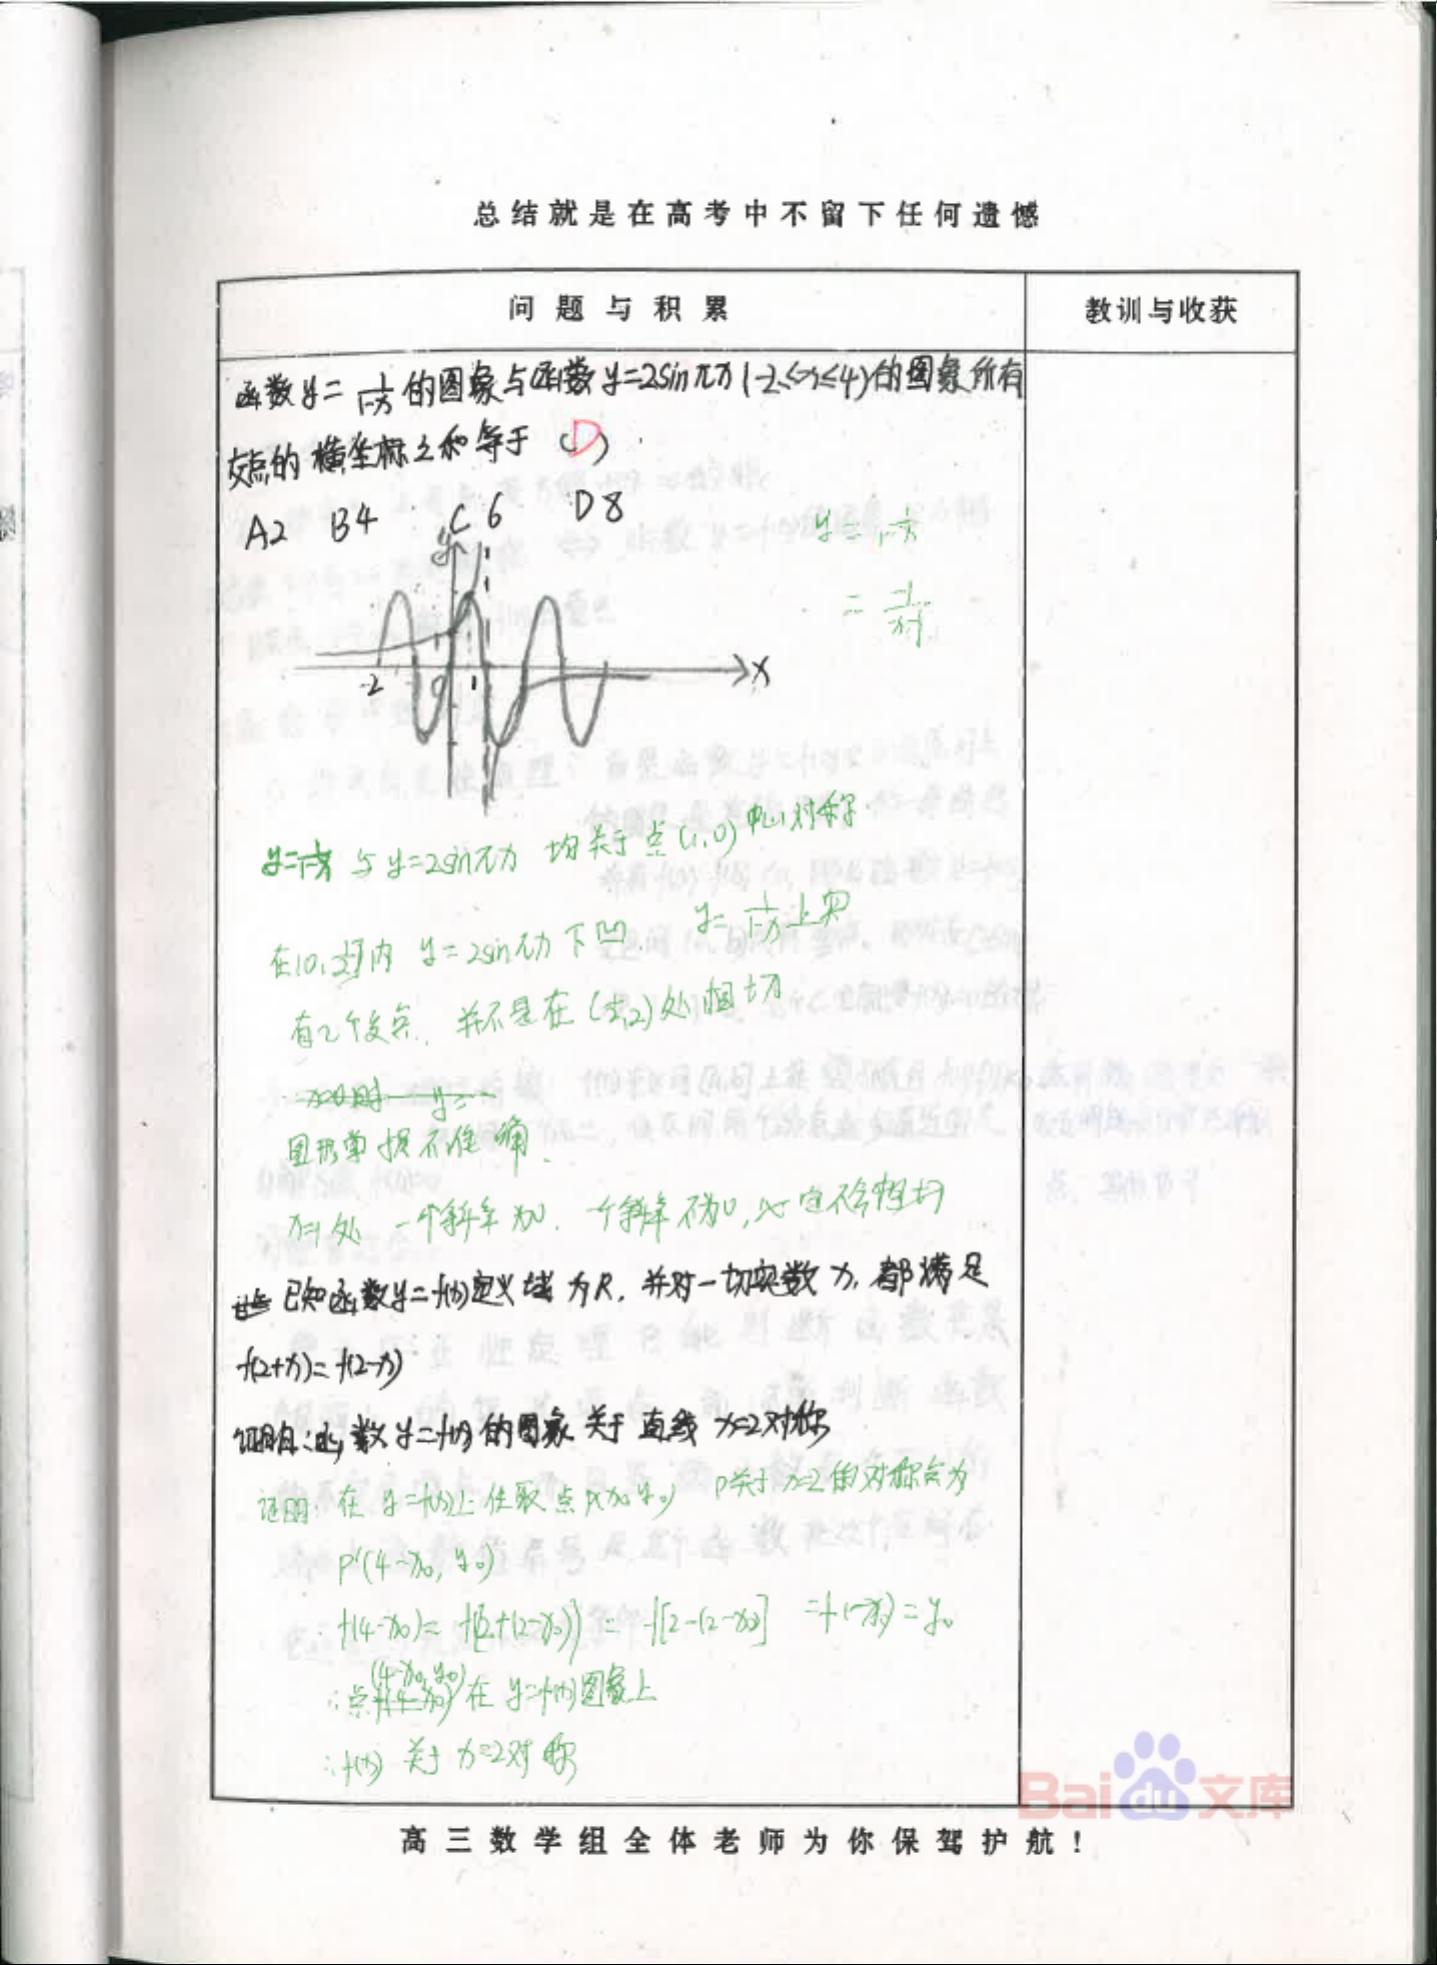 总结就是在高考中不留下任何遗憾
问题与积累
教训与收获
函数y=1/(1-x)的图象与函数y=2sinπx(-2≤x≤4)的图象所有
交点的横坐标之和等于 (D)
A2 B4 C6 D8
y=1/(1-x)
=-1/(x-1)
y
-2 0 1 x
y=1/(1-x) 与 y=2sinπx 均关于点(1,0)中心对称
在 内 y=2sinπx 下凹, y=1/(1-x) 上
有2个交点, 并不是在(1/2,2)处相切
x= 时 y=
图形掌握不准确.
处 一个斜率为0, 一个斜率不为0, 一定不会相切
已知函数y=f(x)定义域为R, 并对一切实数x, 都满足
f(2+x)=f(2-x)
证明:函数y=f(x)的图象关于直线x=2对称
证明: 在y=f(x)上任取点P(x₀,y₀) P关于x=2的对称点为
P'(4-x₀, y₀)
f(4-x₀)=f[2+(2-x₀)]=f[2-(2-x₀)] =f(x₀)=y₀
(4-x₀,y₀)
∴点f(4-x₀)在y=f(x)图象上
∴f(x)关于x=2对称
Baidu文库
高三数学组全体老师为你保驾护航!